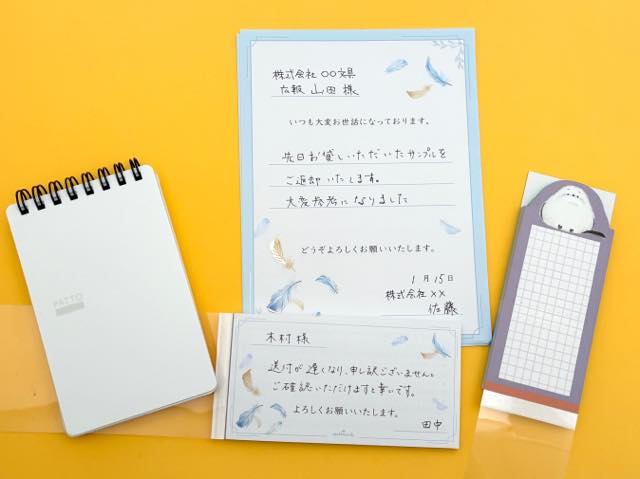 PATTO
株式会社 〇〇文具
広報 山田 様
いつも大変お世話になっております。
先日お貸しいただいたサンプルを
ご返却いたします。
大変参考になりました
どうぞよろしくお願いいたします。
1月15日
株式会社××
佐藤
木村様
送付が遅くなり、申し訳ございません。
ご確認いただけますと幸いです。
よろしくお願いいたします。
田中